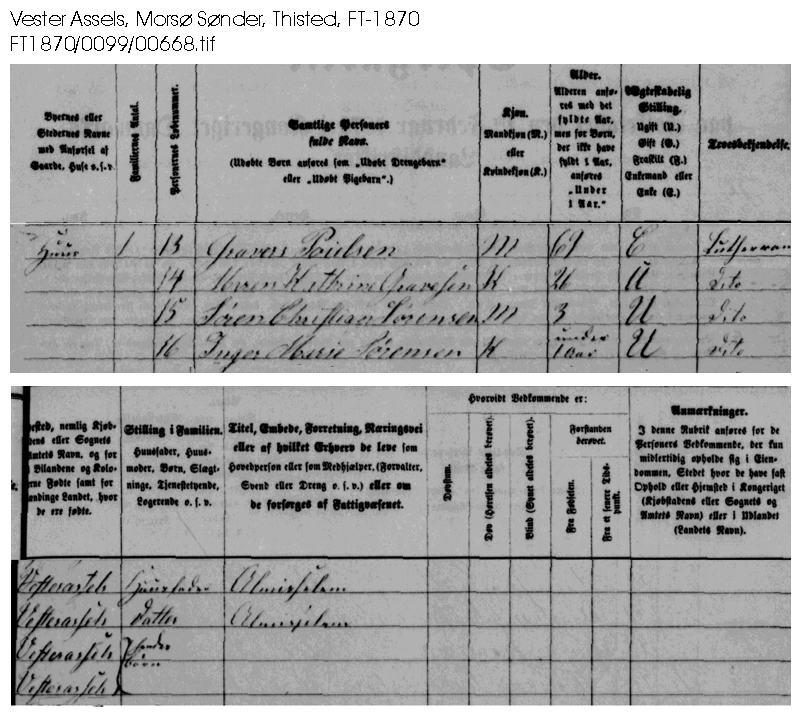 Vester Assels, Morsø Sønder, Thisted, FT-1870
FT1870/0099/00668.tif
Byernes eller Stedernes Navn med Anførsel af Gaarde, Huse o.s.v.
Familiernes Antal.
Personernes Løbenummer.
Samtlige Personers fulde Navn.
(Udøbte Børn anføres som „Udøbt Drengebarn“ eller „Udøbt Pigebarn“.)
Kjøn.
Mandkjøn (M.) eller Kvindekjøn (K.)
Alder.
Alderen anføres med det fyldte Aar, men for Børn, der ikke have fyldt 1 Aar, anføres „Under 1 Aar.“
Ægteskabelig Stilling.
Ugift (U.) Gift (G.) Fraskilt (F.) Enkemand eller Enke (E.)
Troesbekjendelse.
Huus 1 13 Gravers Poulsen M 69 E Lutheraan
14 Maren Kathrine Gravesen K 26 U dito
15 Søren Christian Sørensen M 3 U dito
16 Inger Marie Sørensen K under 1 aar U dito
ested, nemlig Kjøb-
dens eller Sognets
Amtets Navn, og for
Bilandene og Kolo-
rne Fødte samt for
andinge Landet, hvor
de ere fødte.
Stilling i Familien.
Huusfader, Huus-
moder, Børn, Slægt-
ninge, Tjenestetyende,
Logerende o.s.v.
Titel, Embede, Forretning, Næringsvei
eller af hvilket Erhverv de leve som
Hovedperson eller som Medhjælper, (Forvalter,
Svend eller Dreng o.s.v.) eller om
de forsørges af Fattigvæsenet.
Hvorvidt Vedkommende er:
Døvstum.
Døv (Hørelsen aldeles berøvet).
Blind (Synet aldeles berøvet).
Forstanden berøvet.
Fra Fødselen.
Fra et senere Tidspunkt.
Anmærkninger.
I denne Rubrik anføres for de
Personers Vedkommende, der kun
midlertidig opholde sig i Eien-
dommen, Stedet hvor de have fast
Ophold eller Hjemsted i Kongeriget
(Kjøbstadens eller Sognets og
Amtets Navn) eller i Udlandet
(Landets Navn).
Vesterassels Huusfader Almisselem
Vesterassels Datter Almisselem
Vesterassels hendes børn
Vesterassels